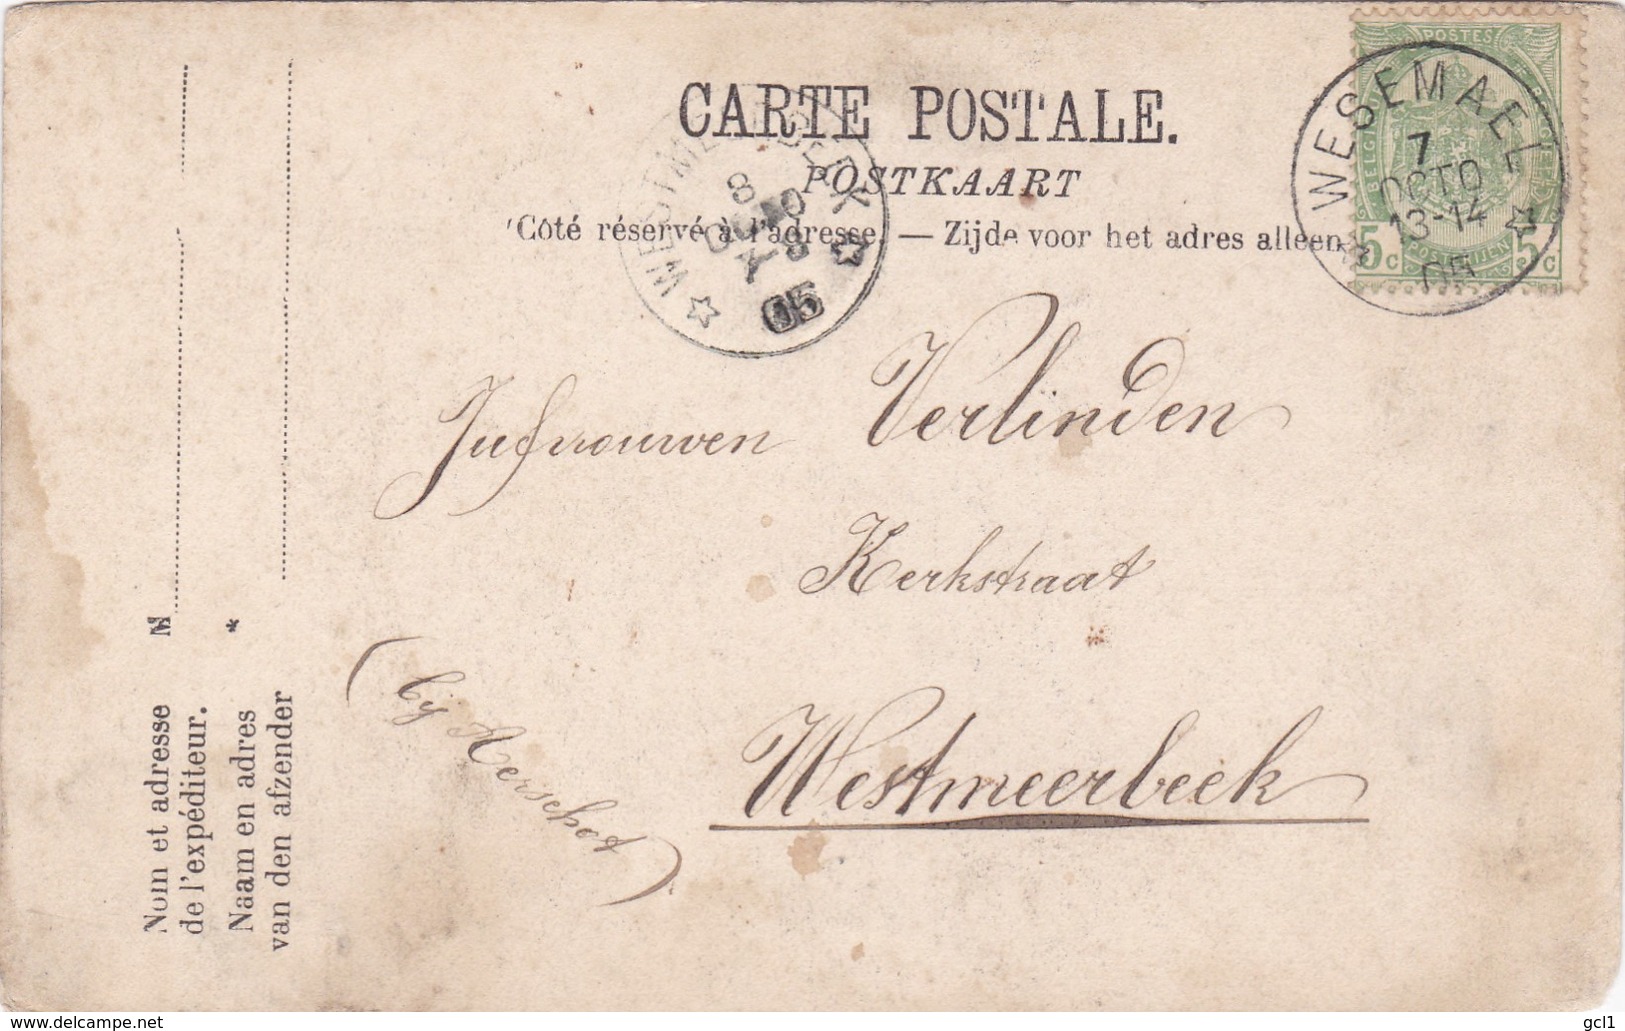 CARTE POSTALE.
POSTKAART
Côté réservé à l'adresse. — Zijde voor het adres alleen
POSTES
5 c 5 c
WESEMAEL
7
OCTO
13-14
05
WESTMEERBEEK
8
05
Jufrouwen Verlinden
Kerkstraat
Westmeerbeek
(bij Aerschot)
Nom et adresse
de l'expéditeur.
Naam en adres
van den afzender
*
www.delcampe.net
gcl1